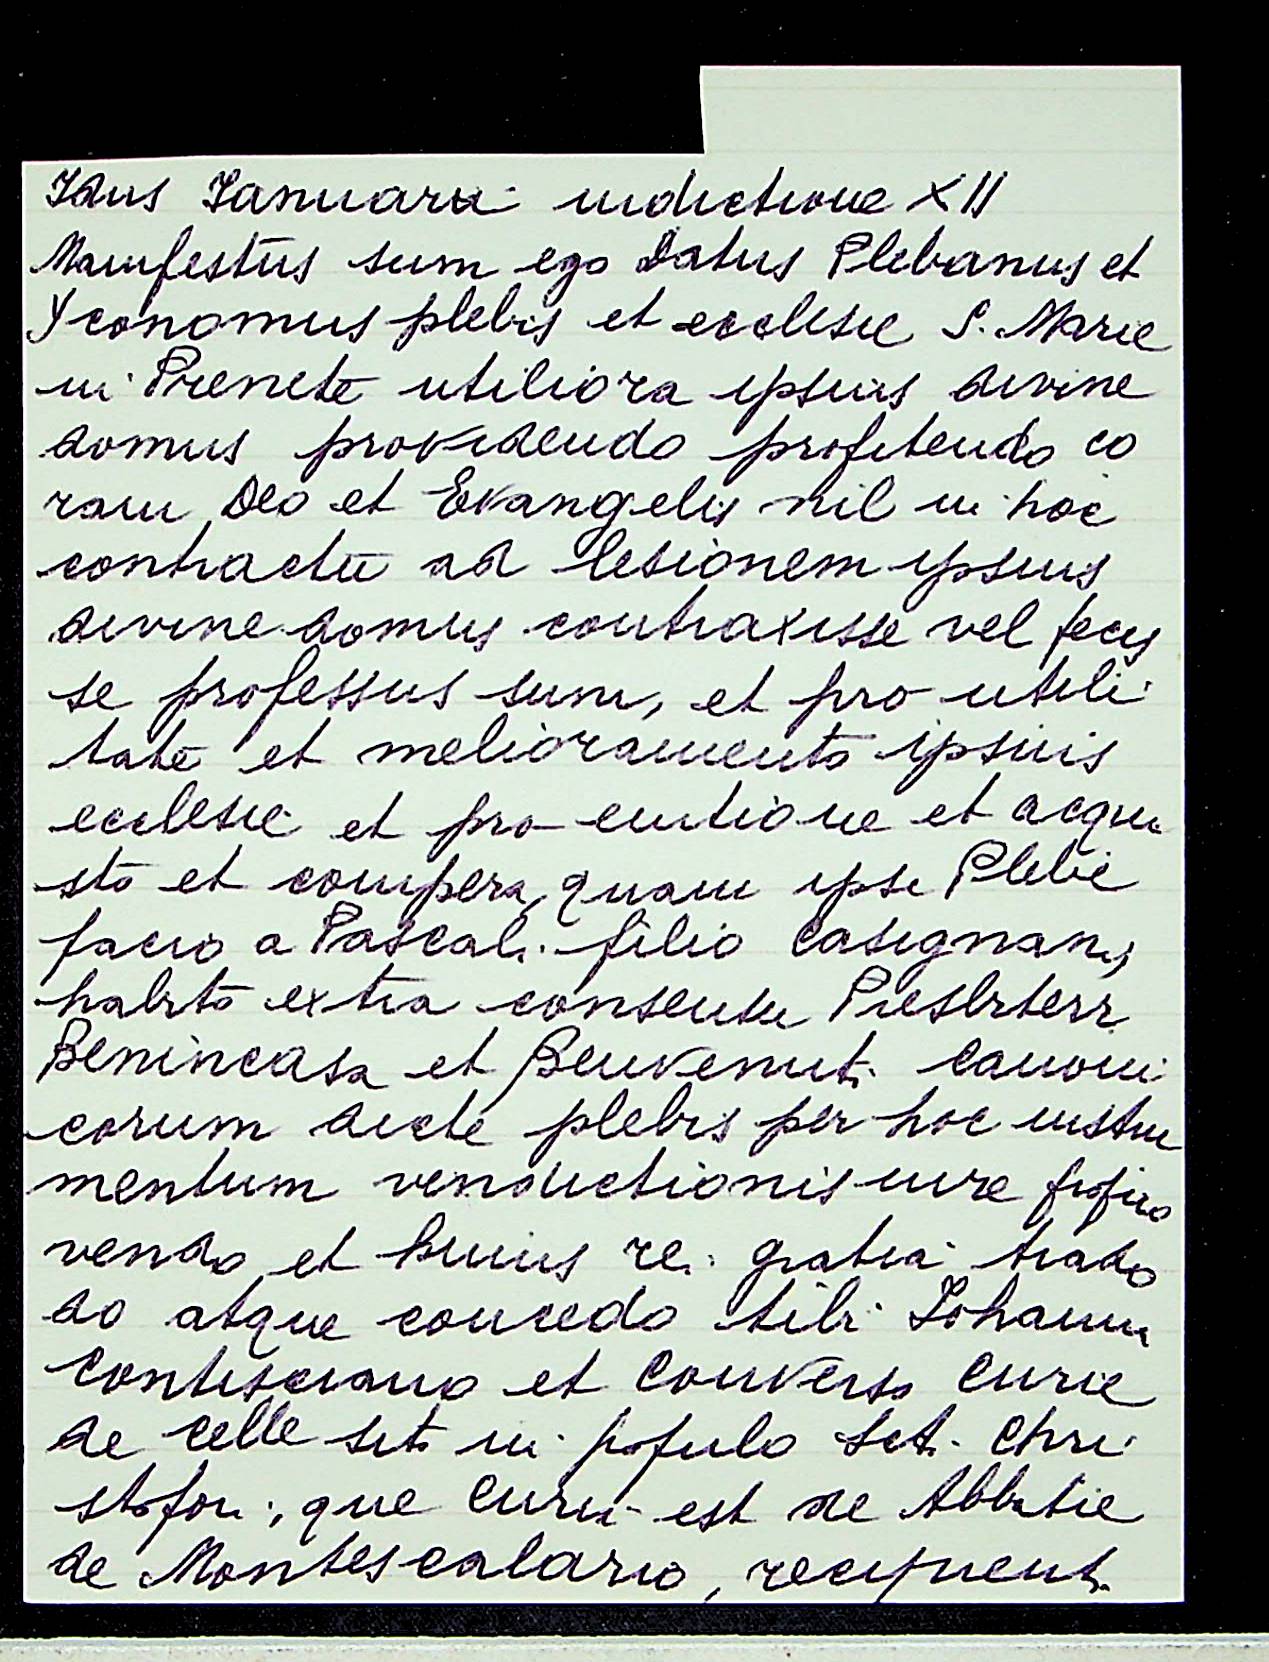 Idus Ianuarii indictione XII
Manifestus sum ego Datus Plebanus et
Yconomus plebis et ecclesie S. Marie
in Prenete utiliora ipsius divine
domus providendo profitendo co
ram Deo et Evangelis nil in hoc
contractu ad lesionem ipsius
divine domus contraxisse vel fecis
se professus sum, et pro utili
tate et melioramento ipsius
ecclesie et pro emtione et acqui
sto et compera, quam ipse Plebie
facio a Pascali filio Casignanis
habito extra consensu Presbiteri
Benincasa et Benvenuti canoni
corum dicte plebis per hoc instru
mentum venditionis iure proprio
vendo et huius rei gratia trado
do atque concedo tibi Iohanni
Contisciano et Converso Curie
de Celle sito in populo Sct. Chri
stofori, que Curia est de Abbatie
de Montescalario, recipienti